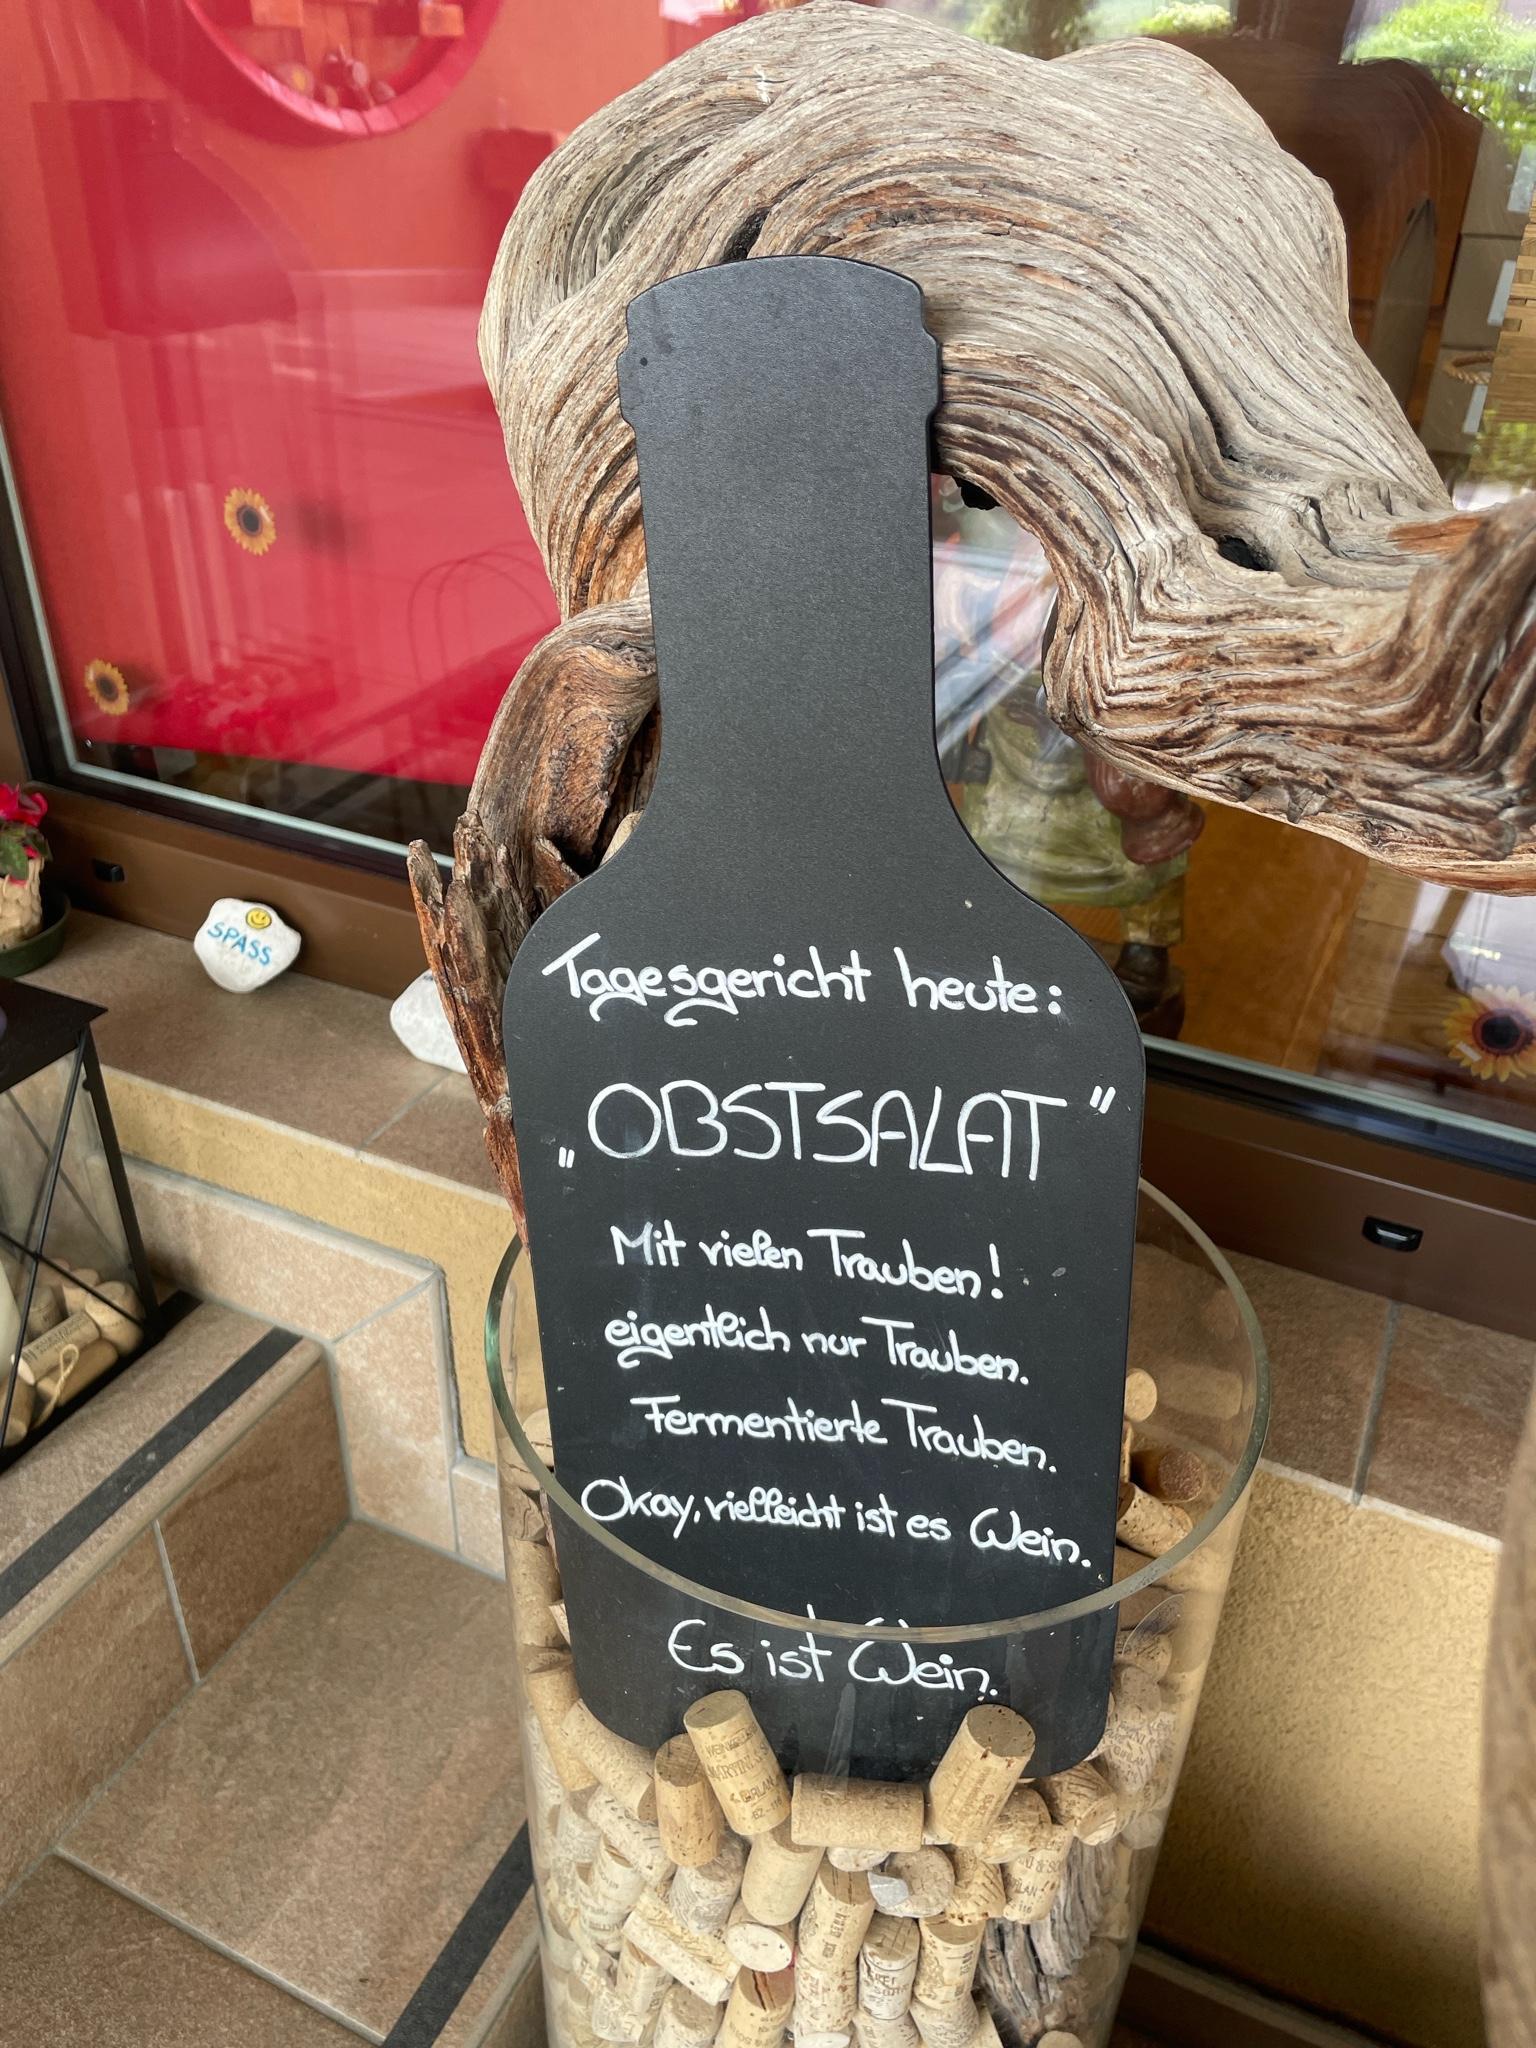 SPASS
Tagesgericht heute:
„OBSTSALAT"
Mit vielen Trauben!
eigentlich nur Trauben.
Fermentierte Trauben.
Okay, vielleicht ist es Wein.
Es ist Wein.